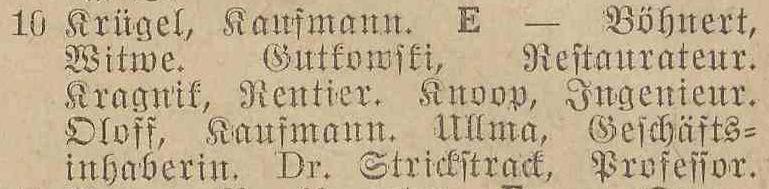 10 Krügel, Kaufmann. E — Böhnert,
Witwe. Gutkowſki, Reſtaurateur.
Kragnik, Rentier. Knoop, Ingenieur.
Oloff, Kaufmann. Ullma, Geſchäfts-
inhaberin. Dr. Strickſtrack, Profeſſor.